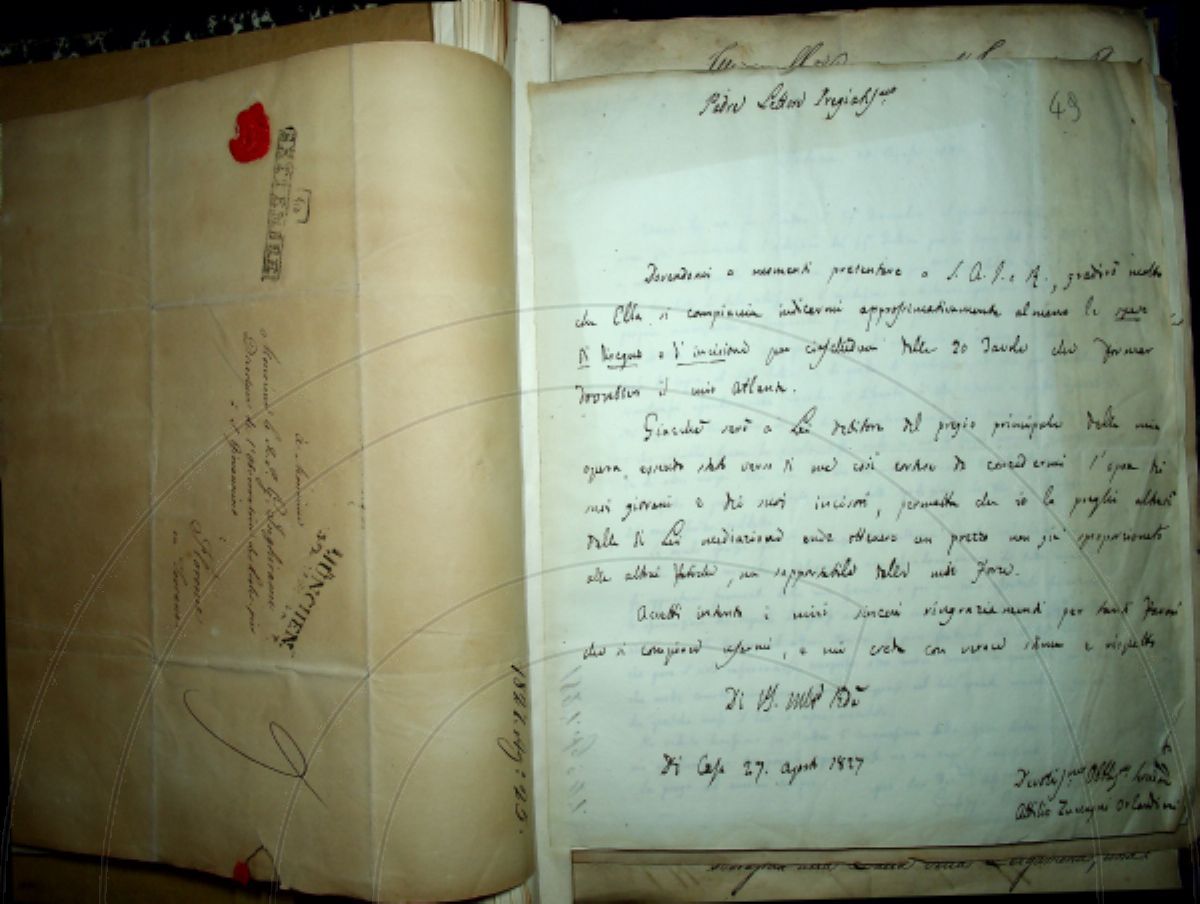 Padre Lettore Pregiatis.mo
49
Dovendomi a momenti presentare a S. A. I. e R., gradirò molto
che Ella si compiaccia indicarmi approssimativamente almeno le spese
di disegno e d'incisione per ciascheduna delle 20 Tavole che formar
dovrebbero il mio Atlante.
Giacchè sarò a Lei debitore del pregio principale della mia
opera, essendo stato verso di me così cortese da concedermi l'opra di
suoi giovani e dei suoi incisori, permetta che io la preghi altresì
della di Lei mediazione onde ottenere un prezzo non già sproporzionato
alle altrui fatiche, ma sopportabile dalle mie forze.
Accetti intanto i miei sinceri ringraziamenti per tanti favori
che si compiace usarmi, e mi creda con verace stima e rispetto
Di VS. Mto Rda
Di Casa 27. Aprile 1827
Devotis.mo Obblig.mo
Attilio Zuccagni Orlandini
MÜNCHEN
à Monsieur
a Monsieur le R. P. G. Inghirami
Directeur de l'Observatoire des Ecoles pies
à
Florence
en Toscane